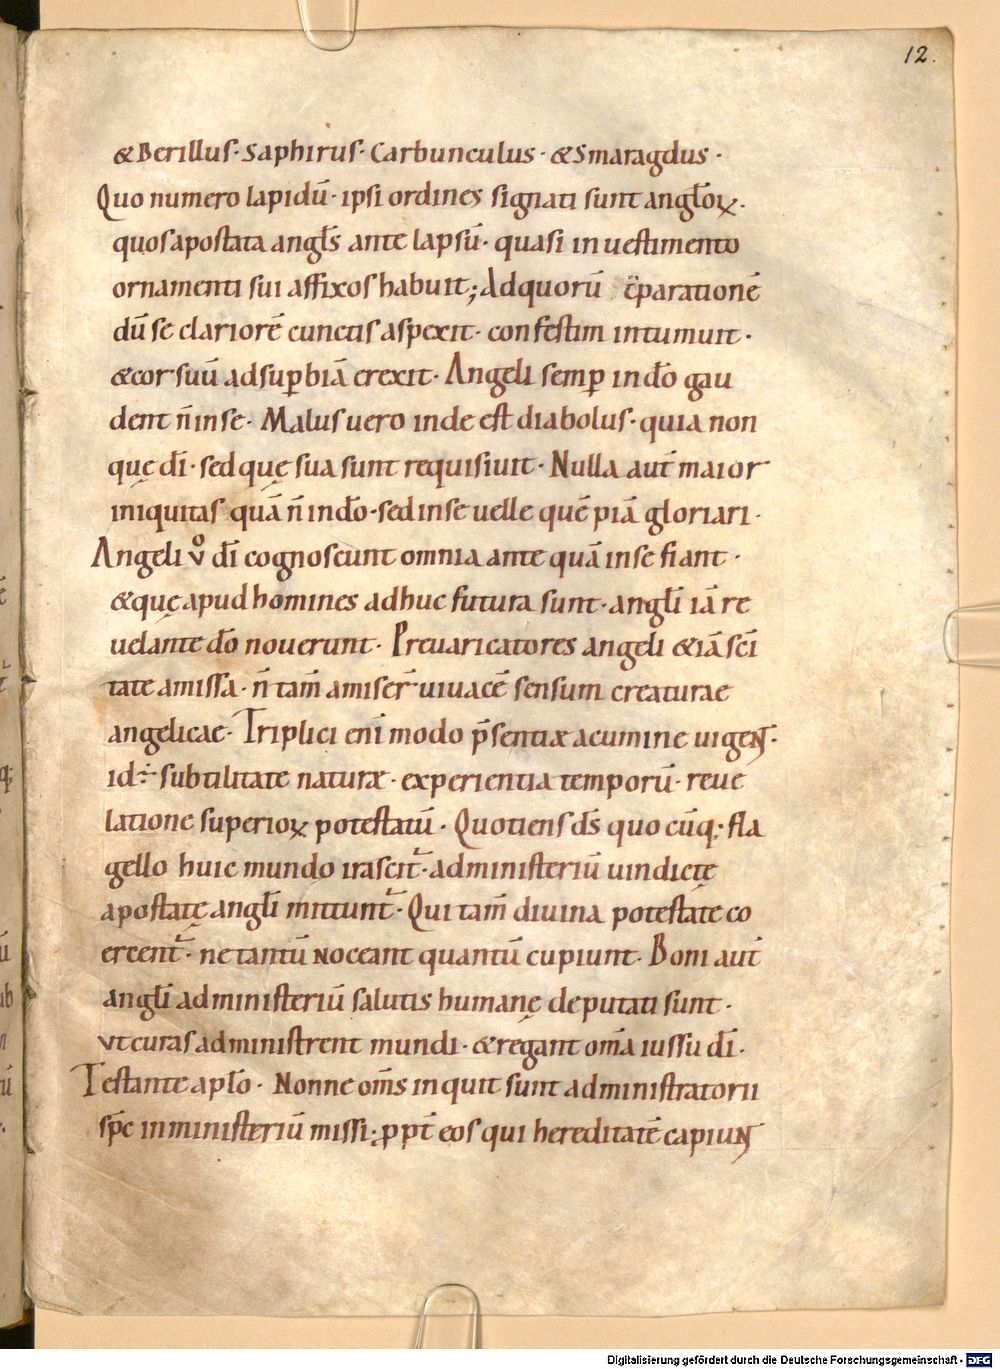 12.
& Berillus· Saphirus· Carbunculus· & Smaragdus·
Quo numero lapidū· ipsi ordines signati sunt angl̄oꝝ.
quos apostata angl̄s ante lapsū· quasi in uestimento
ornamenti sui affixos habuit; Ad quorū cōparationē
dū se clariorē cunctis aspexit· confestim intumuit·
& cor suū ad suꝑbiā erexit· Angeli semꝑ in dō gau
dent n̄ in se· Malus uero inde est diabolus· quia non
quę dī· sed quę sua sunt requisiuit· Nulla aut̄ maior
iniquitas quā n̄ in dō· sed in se uelle quēpiā gloriari·
Angeli vͦ dī cognoscunt omnia ante quā in se fiant·
& quę apud homines adhuc futura sunt· angl̄i iā re
uelante dō nouerunt· Preuaricatores angeli & iā sc̄i
tate amissa· n̄ tam̄ amiser̄ uiuacē sensum creaturae
angelicae· Triplici eni̅ modo p̄sentiæ acumine uigeɴ̄t·
id ÷ subtilitate naturæ· experientia temporū· reue
latione superioꝝ potestatū· Quotiens ds̄ quocūq; fla
gello huic mundo irascit᷑· administeriū uindictę
apostatę angl̄i mittunt᷑· Qui tam̄ diuina potestate co
ercent᷑· ne tantū noceant quantū cupiunt· Boni aut̄
angl̄i administeriū salutis humanę deputati sunt·
vt curas administrent mundi· & regant om̄a iussu dī·
Testante apl̄o· Nonne om̄s inquit sunt administratorii
sp̄c in ministeriū missi; ꝓpt̄ eos qui hereditatē capiunt
Digitalisierung gefördert durch die Deutsche Forschungsgemeinschaft - DFG